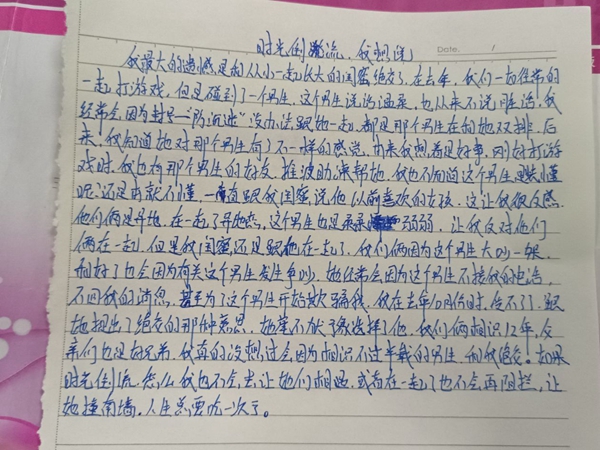 时光倒流,我想说
Date.
我最大的遗憾是和从小一起长大的闺蜜绝交了。在去年,我们一如往常的
一起打游戏,但是碰到了一个男生,这个男生说话温柔,也从来不说脏话,我
经常会因为封号"防沉迷"没办法跟她一起,都是那个男生在和她双排,后
来,我知道她对那个男生有了不一样的感觉,本来我想着是好事,刚好打游
戏时,我也有那个男生的好友,推波助澜帮她,我也不知道这个男生是装懂
呢,还是真就不懂,一直跟我闺蜜说他以前喜欢的女孩,这让我很反感,
他们俩是异地,在一起了异地恋,这个男生也是柔柔弱弱,让我反对他们
俩在一起,但是我闺蜜还是跟他在一起了,我们俩因为这个男生大吵一架,
和好了也会因为有关这个男生发生争吵,她经常会因为这个男生不接我的电话,
不回我的消息,甚至为了这个男生开始欺骗我,我在去年10月份时,受不了,跟
她提出了绝交的那种意思,她毫不犹豫选择了他,我们俩相识12年,父
亲们也是好兄弟,我真的没想过会因为相识不过半载的男生和我绝交。如果
时光倒流,那么我也不会去让她们相遇,或者在一起了也不会再阻拦,让
她撞南墙,人生总要吃一次亏。